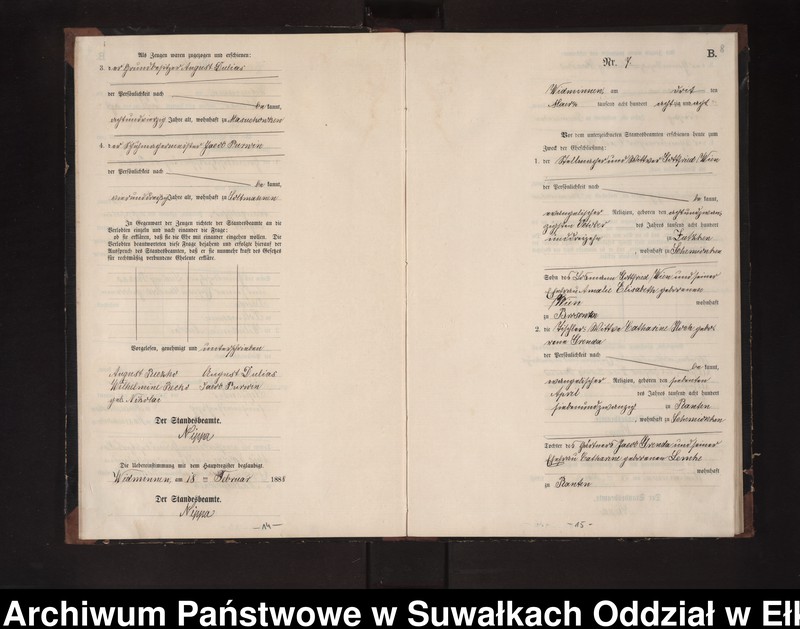 Als Zeugen waren zugezogen und erschienen:
3. der Grundbesitzer August Dulias
der Persönlichkeit nach
be kannt,
achtundvierzig Jahre alt, wohnhaft zu
4. der Schuhmachermeister Jacob Burwin
der Persönlichkeit nach
be kannt,
vierunddreißig Jahre alt, wohnhaft zu
In Gegenwart der Zeugen richtete der Standesbeamte an die
Verlobten einzeln und nach einander die Frage:
ob sie erklären, daß sie die Ehe mit einander eingehen wollen. Die
Verlobten beantworteten diese Frage bejahend und erfolgte hierauf der
Ausspruch des Standesbeamten, daß er sie nunmehr kraft des Gesetzes
für rechtmäßig verbundene Eheleute erkläre.
Vorgelesen, genehmigt und unterschrieben
August August Dulias
Wilhelmine Jacob Burwin
geb. Nikolai
Der Standesbeamte.
Nippa
Die Uebereinstimmung mit dem Hauptregister beglaubigt.
Widminnen, am 18 ten Februar 1888
Der Standesbeamte.
Nippa
-14-
B.
8
Nr. 7
Widminnen, am drei ten
März tausend acht hundert achtzig und acht
Vor dem unterzeichneten Standesbeamten erschienen heute zum
Zweck der Eheschließung:
1. der Stellmacher und Wittwer Gottfried Wien
der Persönlichkeit nach
be kannt,
evangelischer Religion, geboren den achtundzwan
zigsten Oktober des Jahres tausend acht hundert
unddreizehn zu
, wohnhaft zu
Sohn des Losmann Gottfried Wien und seiner
Ehefrau Amalie Elisabeth geborenen
Wien wohnhaft
zu
2. die Tischler-Wittwe Catharine gebo
rene Grenda
der Persönlichkeit nach
be kannt,
evangelischer Religion, geboren den siebenten
April des Jahres tausend acht hundert
siebenundzwanzig zu Ranten
, wohnhaft zu
Tochter des Gärtners Jacob Grenda und seiner
Ehefrau Catharine geborenen
wohnhaft
zu Ranten
-15-
Archiwum Państwowe w Suwałkach Oddział w Ełk